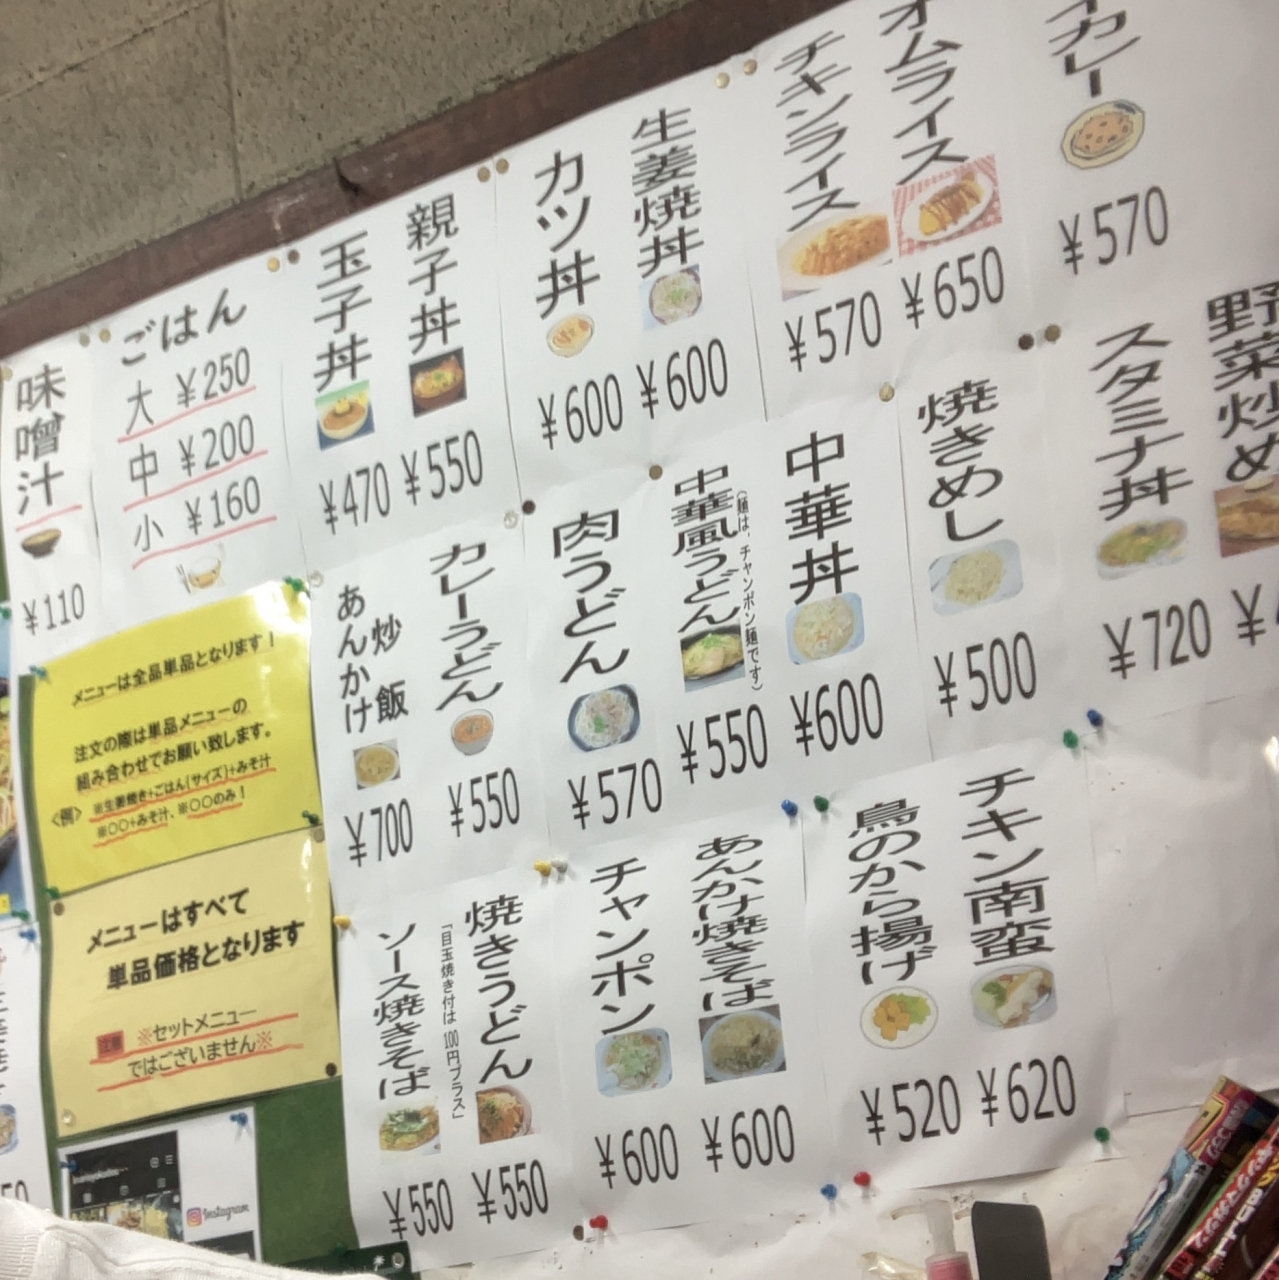 味噌汁
¥110
ごはん
大 ¥250
中 ¥200
小 ¥160
玉子丼
¥470
親子丼
¥550
カツ丼
¥600
生姜焼丼
¥600
チキンライス
¥570
オムライス
¥650
カレー
¥570
あんかけ
炒飯
¥700
カレーうどん
¥550
肉うどん
¥570
中華風うどん
(麺は、チャンポン麺です)
¥550
中華丼
¥600
焼きめし
¥500
スタミナ丼
¥720
野菜炒め
¥
メニューは全品単品となります！
注文の際は単品メニューの
組み合わせでお願い致します。
〈例〉 ※生姜焼き+ごはん(サイズ)+みそ汁
※○○+みそ汁、※○○のみ！
メニューはすべて
単品価格となります
注意 ※セットメニュー
ではございません※
ソース焼きそば
「目玉焼き付は100円プラス」
¥550
焼きうどん
¥550
チャンポン
¥600
あんかけ焼きそば
¥600
鳥のから揚げ
¥520
チキン南蛮
¥620
Instagram